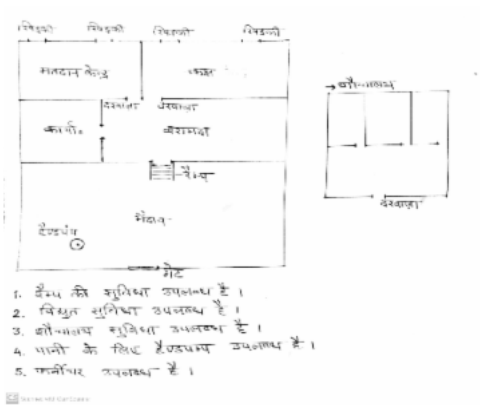 खिडकी खिडकी खिडकी खिडकी
मतदान केन्द्र कक्ष
शौचालय
दरवाजा दरवाजा
कार्या० बरामदा
रैम्प
मैदान
हैण्डपंप
दरवाजा
गेट
1. रैम्प की सुविधा उपलब्ध है ।
2. विद्युत सुविधा उपलब्ध है ।
3. शौचालय सुविधा उपलब्ध है ।
4. पानी के लिए हैण्डपम्प उपलब्ध है ।
5. फर्नीचर उपलब्ध है ।
Scanned with CamScanner